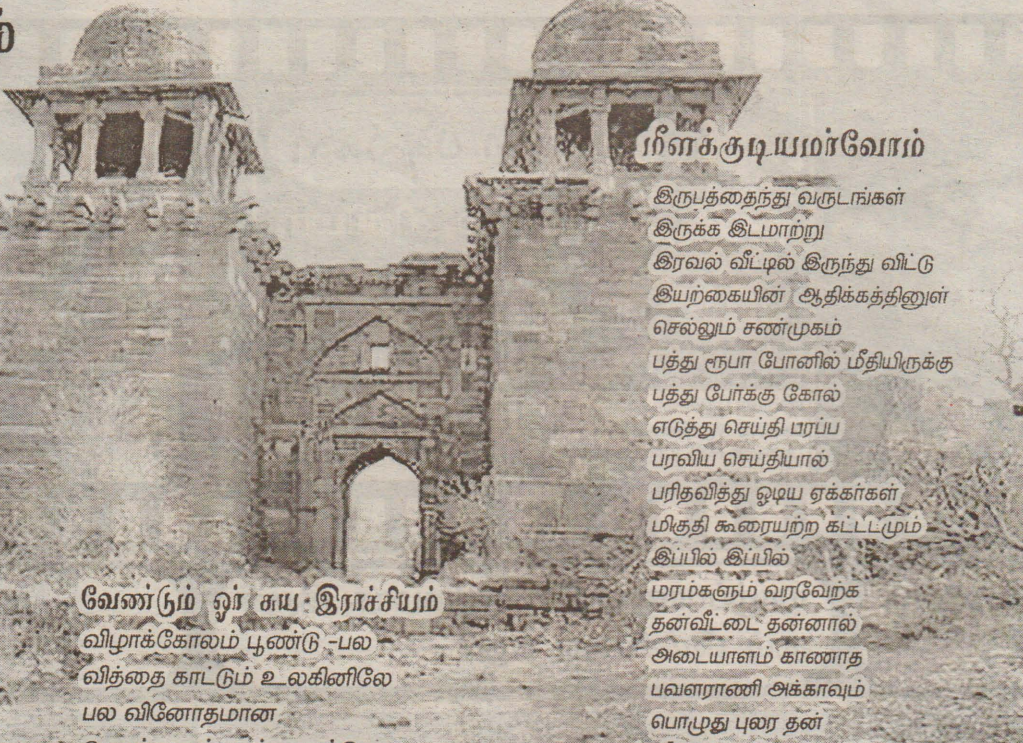 மீளக்குடியமர்வோம்
இருபத்தைந்து வருடங்கள்
இருக்க இடமாற்று
இரவல் வீட்டில் இருந்து விட்டு
இயற்கையின் ஆதிக்கத்தினுள்
செல்லும் சண்முகம்
பத்து ரூபா போனில் மீதியிருக்கு
பத்து பேர்க்கு கோல்
எடுத்து செய்தி பரப்ப
பரவிய செய்தியால்
பரிதவித்து ஓடிய ஏக்கர்கள்
மிகுதி கூரையற்ற கட்டடமும்
இப்பில் இப்பில்
மரம்களும் வரவேற்க
தன்வீட்டை தன்னால்
அடையாளம் காணாத
பவளராணி அக்காவும்
பொழுது புலர தன்
வேண்டும் ஓர் சுய இராச்சியம்
விழாக்கோலம் பூண்டு -பல
வித்தை காட்டும் உலகினிலே
பல வினோதமான